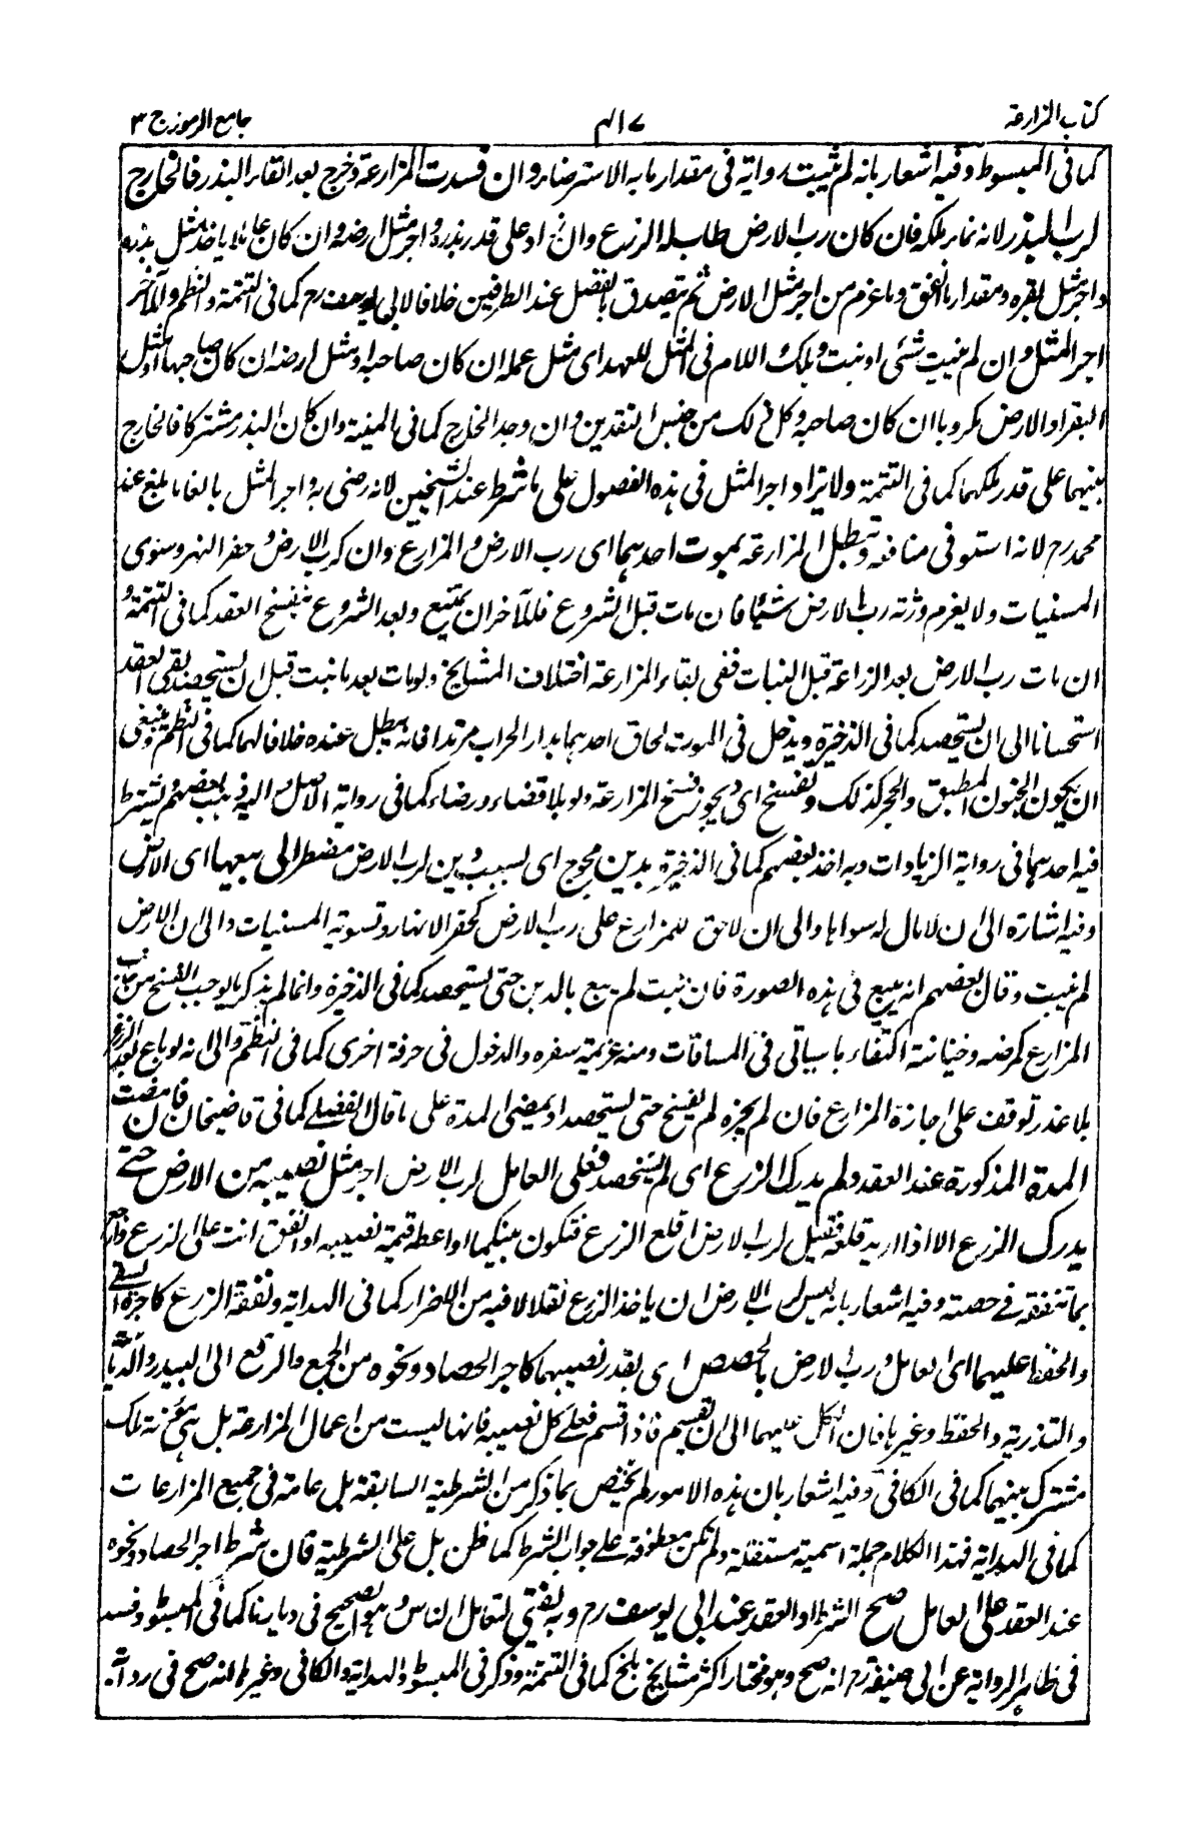 كتاب المزارعة
٤١٧
جامع الرموز ج ٣
كما فى المبسوط وفيه اشعار بانه لم يثبت رواية فى مقدار ما به الاسترضاء وان فسدت المزارعة وخرج بعد القاء البذر فالخارج
لرب البذر لانه نماء ملكه فان كان رب الارض طاب له الزرع وان زاد على قدر بذره واجر مثل ارضه وان كان عاملا ياخذ مثل بذره
واجر مثل بقره ومقدار ما انفق وما غرم من اجر مثل الارض ثم يتصدق بالفضل عند الطرفين خلافا لابى يوسف رح كما فى التتمة والنظم وللآخر
اجر المثل وان لم ينبت شئ او نبت وهلك اللام فى المثل للعهد اى مثل عمله ان كان صاحبه او مثل ارضه ان كان صاحبها او مثل
البقر او الارض مكروبا ان كان صاحبه وكل ذلك من جنس النقدين وان وجد الخارج كما فى المنية وان كان البذر مشتركا فالخارج
بينهما على قدر ملكهما كما فى التتمة ولا يزاد اجر المثل فى هذه الفصول على ما شرط عند الشيخين لانه رضى به واجر المثل بالغا ما بلغ عند
محمد رح لانه استوفى منافعه وتبطل المزارعة بموت احدهما اى رب الارض والمزارع وان كرب الارض وحفر النهر وسوى
المسنيات ولا يغرم ورثة رب الارض شيئا فان مات قبل الشروع فللآخر ان يمتنع وبعد الشروع ينفسخ العقد كما فى التتمة و
ان مات رب الارض بعد الزراعة قبل النبات ففى بقاء المزارعة اختلاف المشايخ ولو مات بعد ما نبت قبل ان يستحصد يبقى العقد
استحسانا الى ان يستحصد كما فى الذخيرة ويدخل فى الموت لحاق احدهما بدار الحراب مرتدا فانه يبطل عنده خلافا لهما كما فى النظم وينبغى
ان يكون الجنون المطبق والحجر كذلك وتفسخ اى ويجوز فسخ المزارعة ولو بلا قضاء ورضاء كما فى رواية الاصل واليه ذهب بعضهم ويشترط
فيه احدهما فى رواية الزيادات وبه اخذ بعضهم كما فى الذخيرة بدين محوج اى بسبب دين لرب الارض مضطر الى بيعها اى الارض
وفيه اشارة الى ان لا مال له سواها والى ان لاحق للمزارع على رب الارض كحفر الانهار وتسوية المسنيات والى ان الارض
لم تنبت وقال بعضهم انه يبيع فى هذه الصورة فان نبت لم يبع بالدين حتى يستحصد كما فى الذخيرة وانما لم يذكر ما يوجب الفسخ من جانب
المزارع كمرضه وخيانته اكتفاء بما سياتى فى المساقات ومنه عزيمة سفره والدخول فى حرفة اخرى كما فى النظم والى انه لو باع بعد الزرع
بلا عذر توقف على اجازة المزارع فان لم يجزه لم يفسخ حتى يستحصد او يمضى المدة على ما قال الفضلى كما فى قاضيخان فان مضت
المدة المذكورة عند العقد ولم يدرك الزرع اى لم يستحصد فعلى العامل لرب الارض اجر مثل نصيبه من الارض حتى
يدرك الزرع الا اذا اريد قلعه فقيل لرب الارض اقلع الزرع فتكون بينكما او اعطه قيمة نصيبه او انفق انت على الزرع وارجع
بما تنفقه فى حصته وفيه اشعار بانه ليس لرب الارض ان ياخذ الزرع بقلا لا فيه من الاضرار كما فى الهداية ونفقة الزرع كاجرة السقى
والحفظ عليهما اى العامل ورب الارض بالحصص اى بقدر نصيبهما كاجر الحصاد ونحوه من الجمع والرفع الى البيدر والدياسة
والتذرية والحفظ وغيرها فان الكل عليهما الى ان تقسيم فاذا قسم فعلى كل نصيبه فانها ليست من اعمال المزارعة بل هى مؤنة ملك
مشترك بينهما كما فى الكافى وفيه اشعار بان هذه الامور لم تختص بما ذكر من الشرطية السابقة بل عامة فى جميع المزارعات
كما فى الهداية فهذا الكلام جملة اسمية مستقلة ولم تكن معطوفة على جواب الشرط كما ظن بل على الشرطية فان شرط اجر الحصاد ونحوه
عند العقد على العامل صح الشرط او العقد عند ابى يوسف رح وبه يفتى لتعامل الناس وهو الصحيح فى ديارنا كما فى المبسوط وفسد
فى ظاهر الرواية عن ابى حنيفة رح انه صح وهو مختار اكثر مشايخ بلخ كما فى التتمة وذكر فى المبسوط والهداية والكافى وغيرها انه صح فى رواية